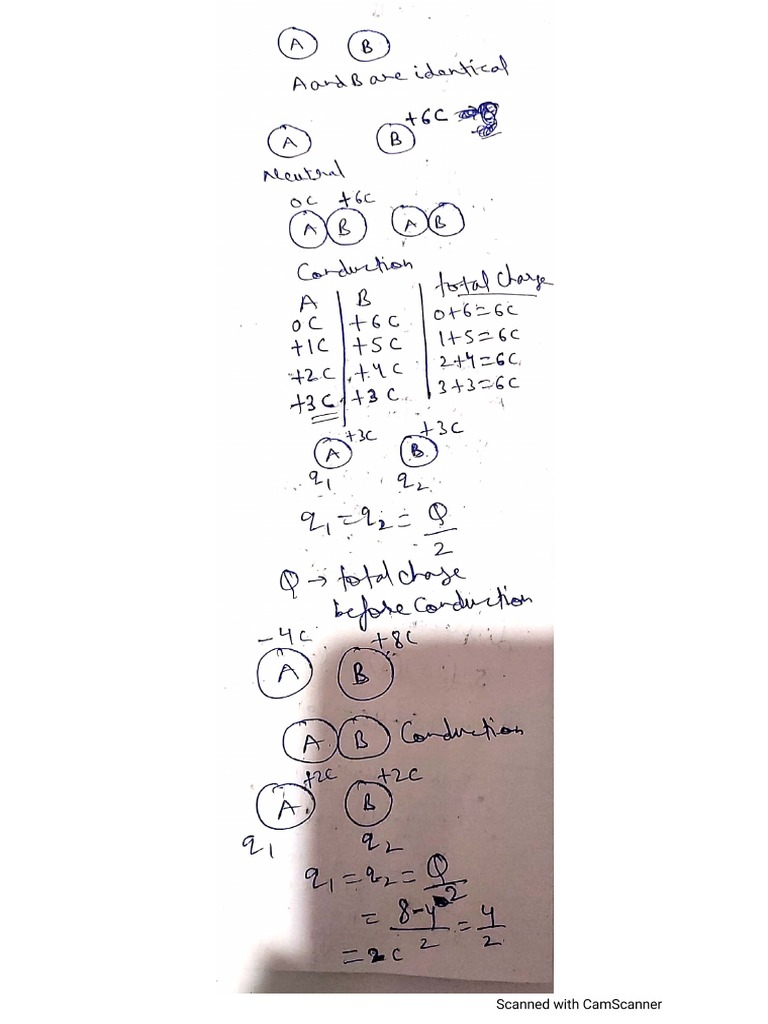 A B
A and B are identical
A B +6C
Neutral
0C +6C
A B A B
Conduction
A B total charge
0C +6C 0+6=6C
+1C +5C 1+5=6C
+2C +4C 2+4=6C
+3C +3C 3+3=6C
+3C +3C
A B
q1 q2
q1 = q2 = Q/2
Q → total charge
before Conduction
-4C +8C
A B
A B Conduction
+2C +2C
A B
q1 q2
q1 = q2 = Q/2
= 8-4/2 = 4/2
= 2C
Scanned with CamScanner